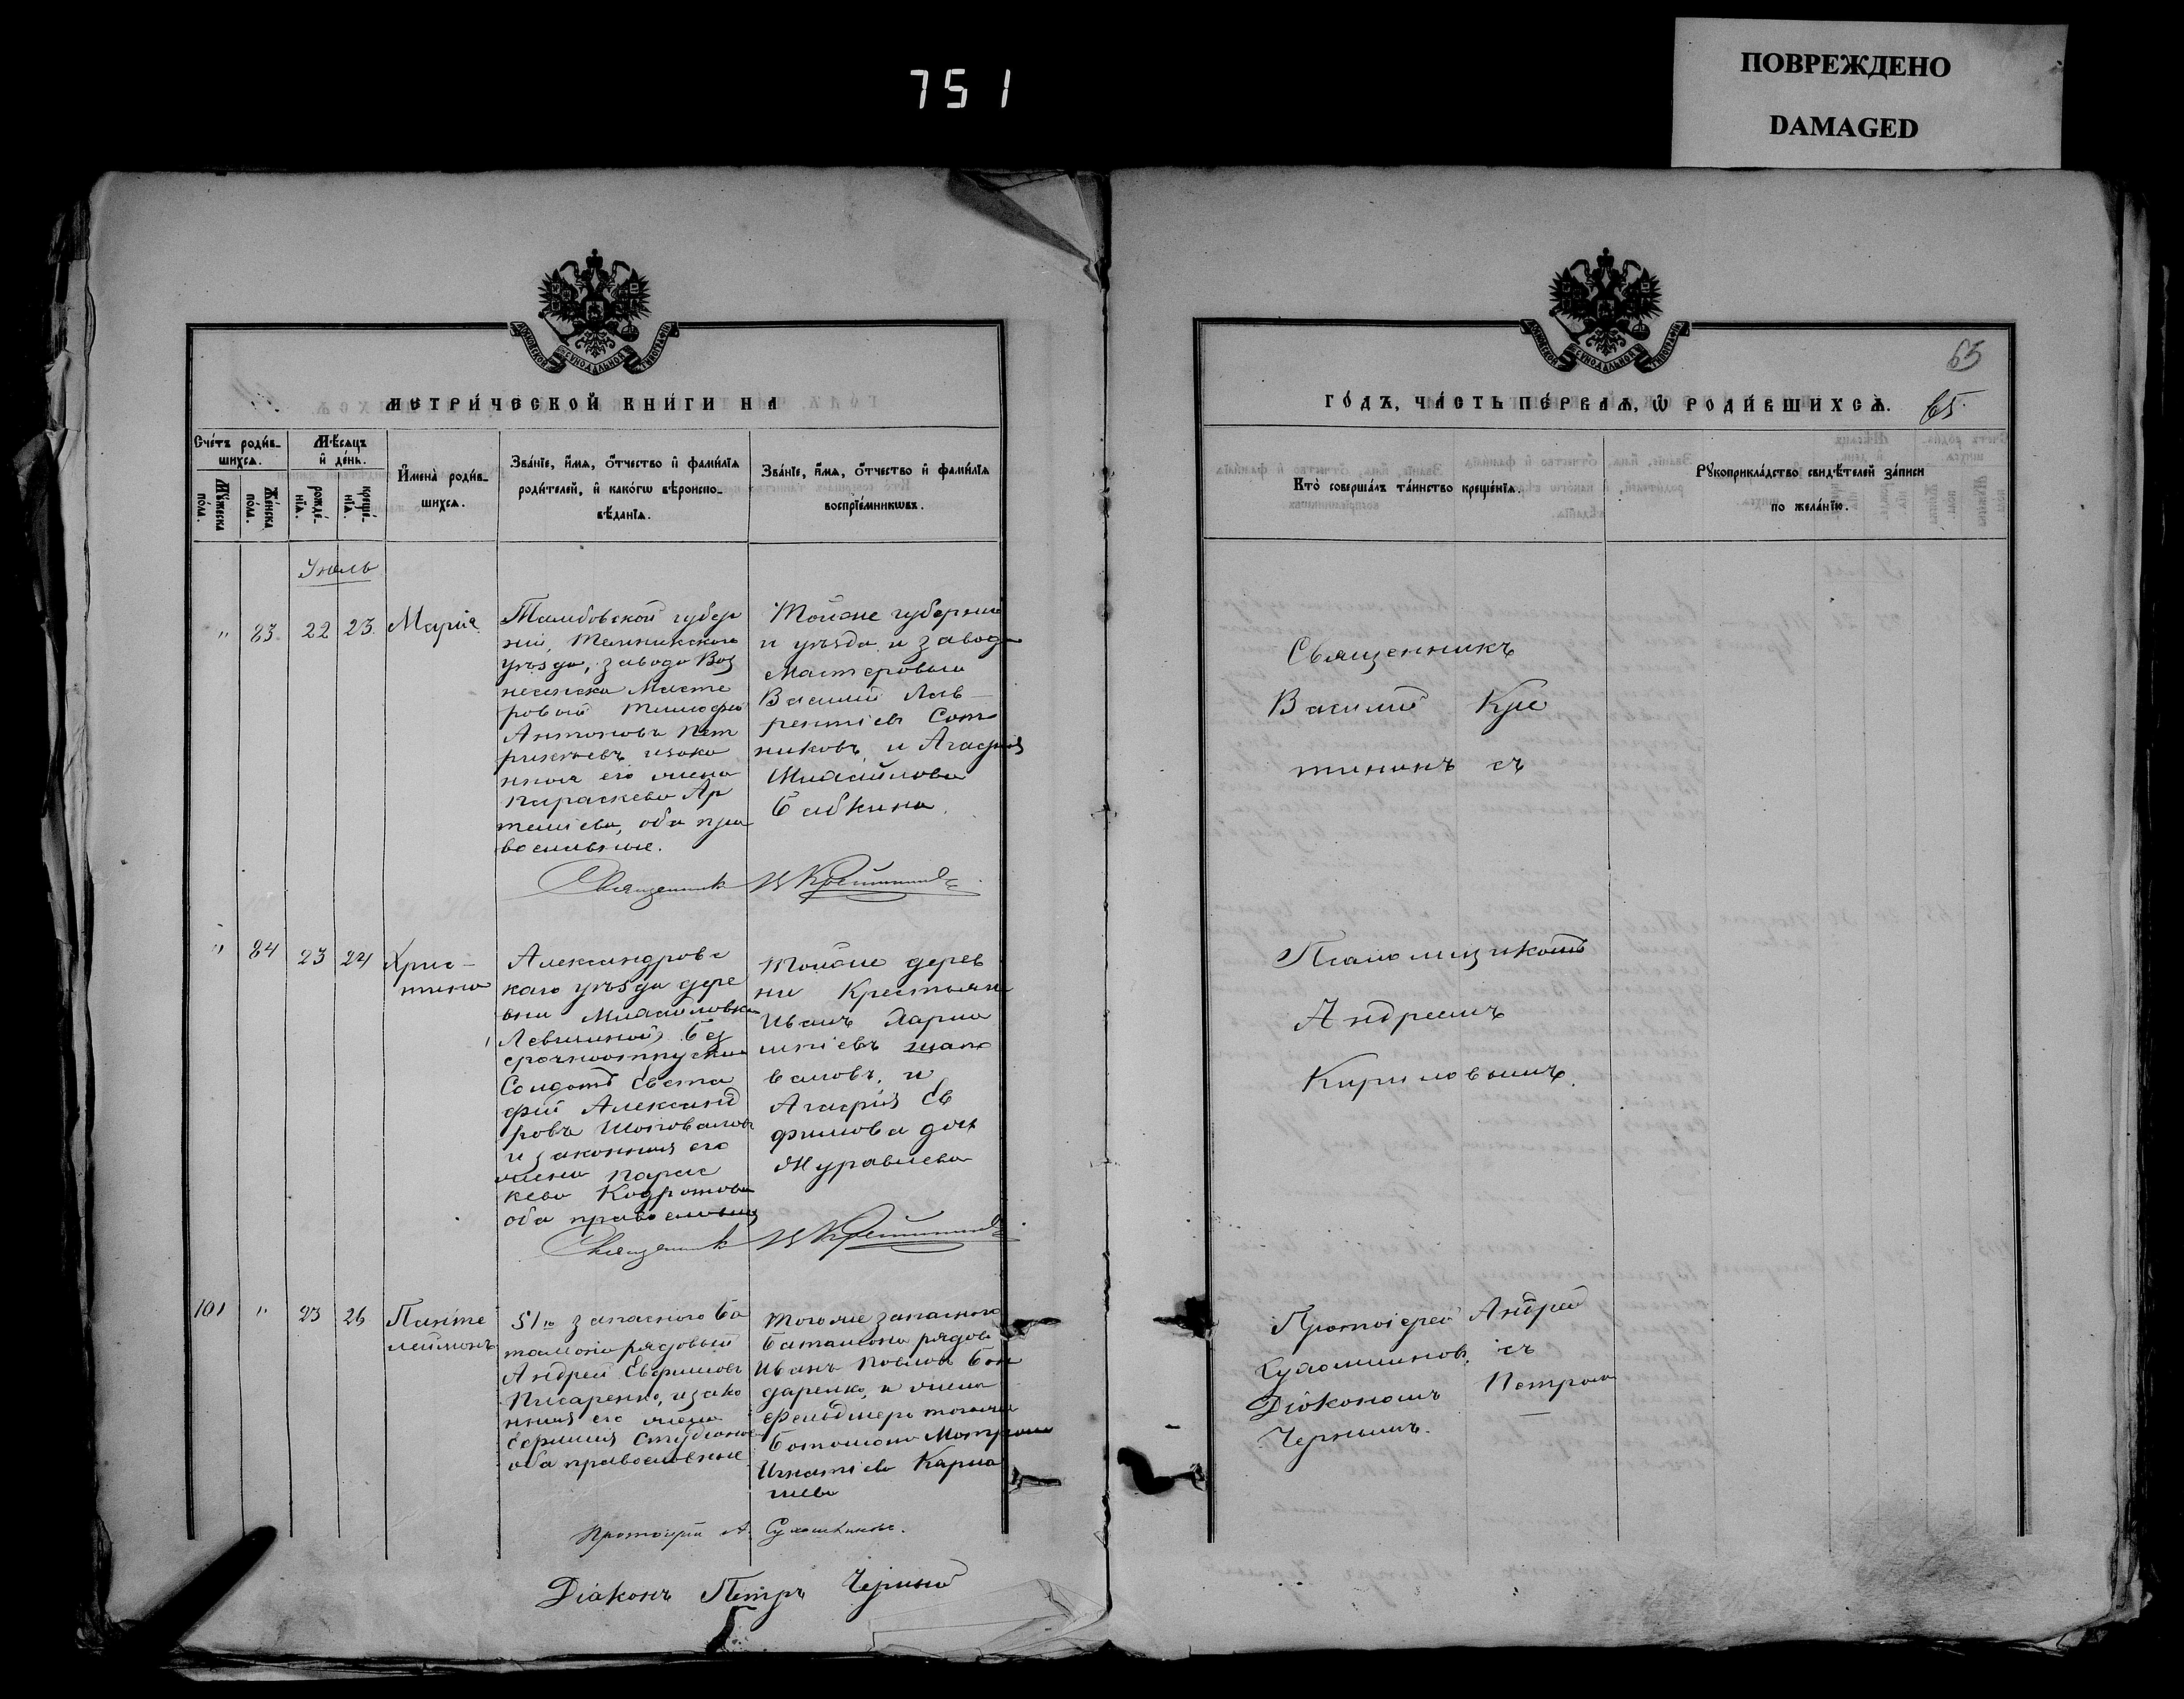 751
ПОВРЕЖДЕНО
DAMAGED
МЕТРИ́ЧЕСКОЙ КНИ́ГИ НА
Сче́тъ роди́в-
шихсѧ.
Мѣ́сѧцъ
и҆ де́нь.
И҆мена̀ роди́в-
шихсѧ.
Зва́нїе, и҆́мѧ, ѻ҆́тчество и҆ фами́лїѧ
роди́телей, и҆ како́гѡ вѣроиспо-
вѣ́данїѧ.
Зва́нїе, и҆́мѧ, ѻ҆́тчество и҆ фами́лїѧ
воспрїе́мникѡвъ.
Мꙋ́жеска
по́ла.
Же́нска
по́ла.
рожде́-
нїѧ.
креще́-
нїѧ.
Июль
" 83. 22 23. Марія
Тамбовской губер
ніи, Темниковскаго
уѣзда, завода Воз
несенска Масте
ровой Тимофей
Антоновъ Пет
и зако
нная его жена
Параскева Ар
теміева, оба пра
вославные.
Тойже губерніи
и уѣзда и завода
Мастеровой
Василий Лав-
рентіевъ Сот
никовъ, и Агафія
Михайлова
Бабкина.
Священник
" 84 23 24 Хрис-
тина
Александровс
каго уѣзда дере
вни Михайловки
Левшиной без
срочноотпускной
Солдатъ Евста
фій Александ
ровъ Шаповаловъ
и законная его
жена Парас
кева Кодратова
оба православные
Тойже дерев
ни Крестьяни
Иванъ Харла
мпіевъ Шапо
валовъ, и
Агафія Ев
фимова дочь
Журавлева
Священник
101 " 23 26 Панте
леймонъ
51го запаснаго ба
таліона рядовый
Андрей Евфимовъ
Писаренко, и зако
нная его жена
оба православные
Тогоже запаснаго
баталіона рядовый
Иванъ Павловъ Бон
даренко, и жена
фельдшера тогоже
баталіона Матрона
Игнатіева Карна
чева
Протоіерей А.
Діаконъ Петръ Черный
65
ГО́ДЪ, ЧА́СТЬ ПЕ́РВАѦ, Ѡ҆ РОДИ́ВШИХСѦ. 65.
Кто̀ соверша́лъ та́инство креще́нїѧ.
Рꙋкоприкла́дство свидѣ́телей за́писи
по жела́нїю.
Священникъ
Василий Кре
тининъ съ
Псаломщикомъ
Андреемъ
Кириловымъ.
Протоіерей Андрей
съ
Діакономъ Петромъ
Чернымъ.